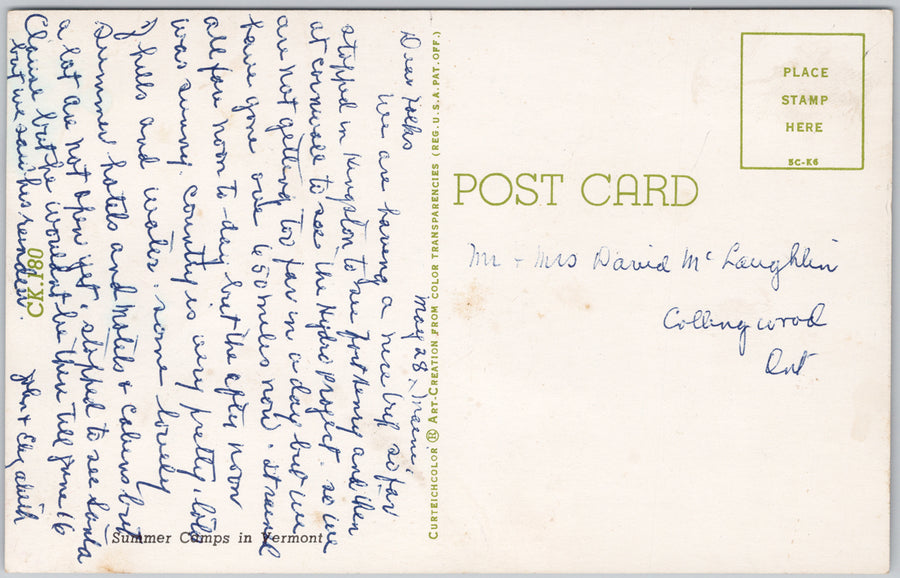 May 28, Maine
Dear Folks
We are having a nice trip so far
stopped in Kingston to see Fort Henry and then
at Cornwall to see the Hydro project. so we
are not getting too far in a day but we
have gone over 650 miles now. it rained
all fore noon to-day but the after noon
was sunny. country is very pretty. lots
of hills and water. some lovely
Summer hotels and Motels & Cabins but
a lot are not open yet. stopped to see Santa
Clause but he wouldnt be there till June 16
but we saw his reindeer.
John & Elizabeth
CK.180
Summer Camps in Vermont
CURTEICHCOLOR ® ART-CREATION FROM COLOR TRANSPARENCIES (REG. U.S.A. PAT. OFF.)
POST CARD
PLACE
STAMP
HERE
5C-K6
Mr + Mrs David McLaughlin
Collingwood
Ont